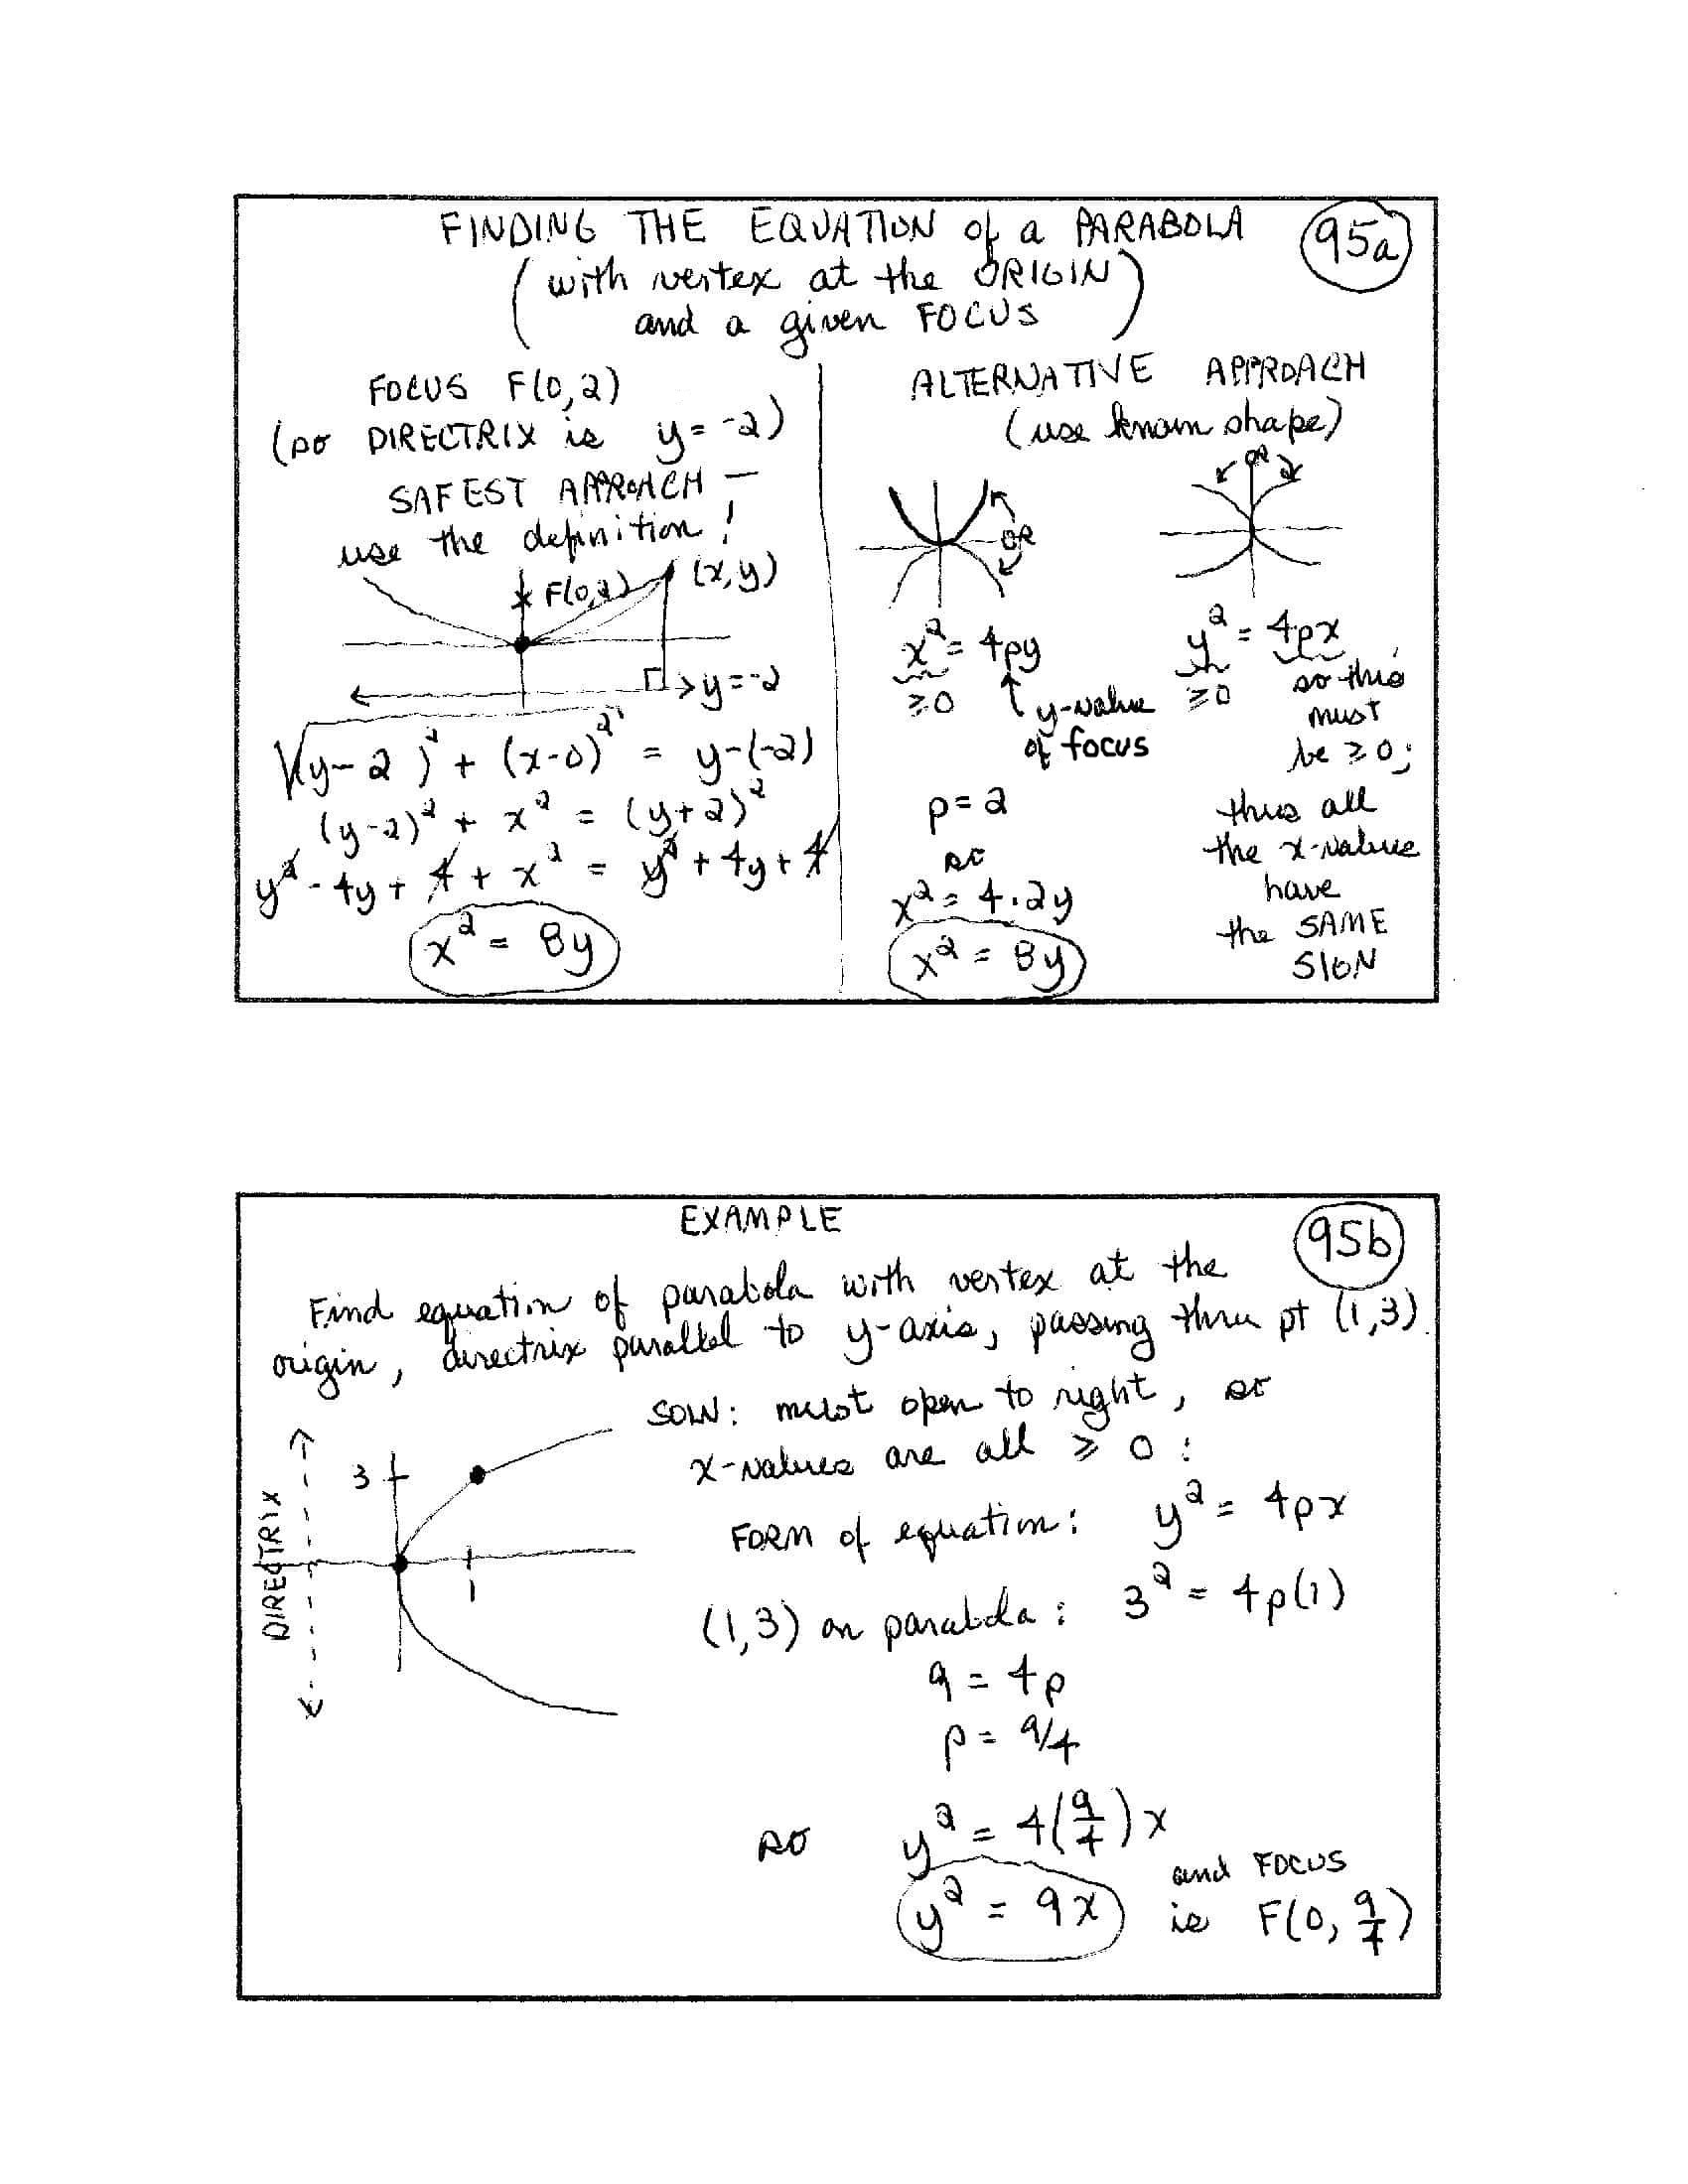 FINDING THE EQUATION of a PARABOLA
(with vertex at the ORIGIN
and a given FOCUS)
95a
FOCUS F(0,2)
(so DIRECTRIX is y=-2)
SAFEST APPROACH —
use the definition!
F(0,2)
(x,y)
y=-2
√(y-2)² + (x-0)² = y-(-2)
(y-2)² + x² = (y+2)²
y² - 4y + 4 + x² = y² + 4y + 4
x² = 8y
ALTERNATIVE APPROACH
(use known shape)
OR
x² = 4py
≥0
y-value
of focus
p=2
so
x² = 4·2y
x² = 8y
OR
y² = 4px
≥0
so this
must
be ≥0;
thus all
the x-values
have
the SAME
SIGN
EXAMPLE
95b
Find equation of parabola with vertex at the
origin, directrix parallel to y-axis, passing thru pt (1,3)
SOLN: must open to right, so
x-values are all ≥ 0:
DIRECTRIX
3
1
FORM of equation: y² = 4px
(1,3) on parabola: 3² = 4p(1)
9 = 4p
p = 9/4
so y² = 4(9/4)x
y² = 9x
and FOCUS
is F(0, 9/4)